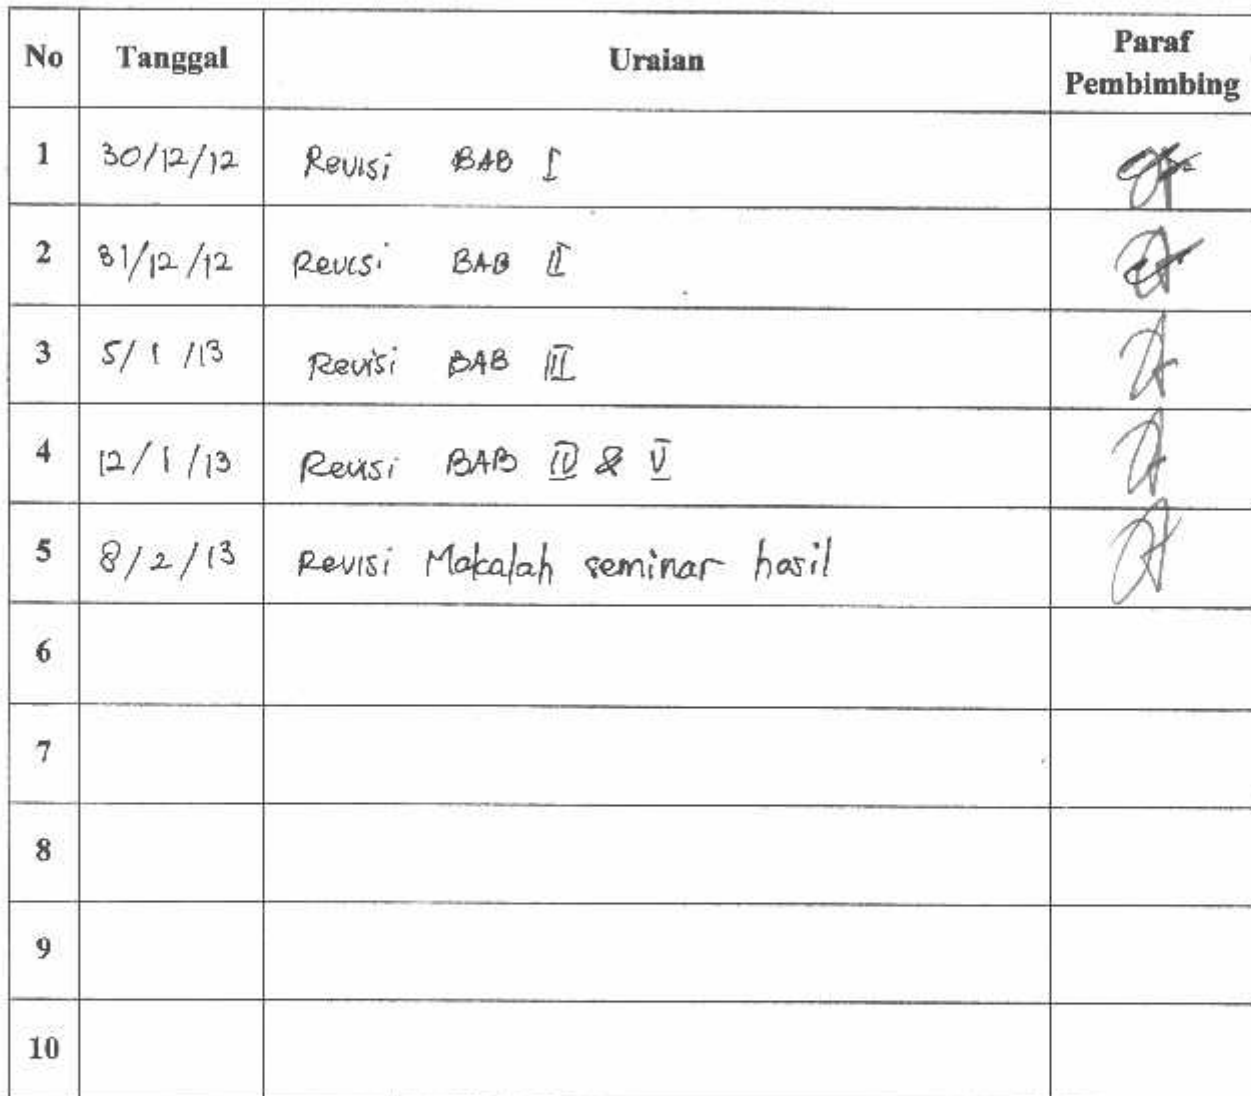 No Tanggal Uraian Paraf Pembimbing
1 30/12/12 Revisi BAB I
2 31/12/12 Revisi BAB II
3 5/1/13 Revisi BAB III
4 12/1/13 Revisi BAB IV & V
5 8/2/13 Revisi Makalah seminar hasil
6
7
8
9
10